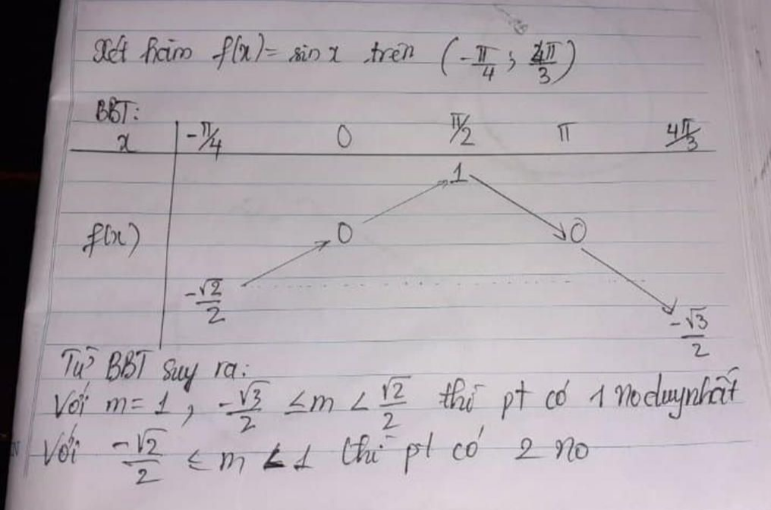 Xét hàm f(x) = sin x trên (-π/4 ; 4π/3)
BBT:
x -π/4 0 π/2 π 4π/3
1
f(x) 0 0
-√2/2 -√3/2
Từ BBT suy ra:
Với m = 1 , -√3/2 ≤ m < √2/2 thì pt có 1 no duy nhất
Với -√2/2 ≤ m < 1 thì pt có 2 no